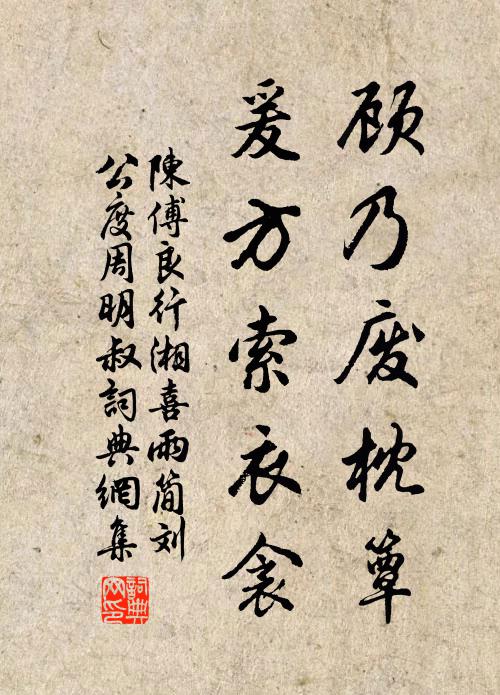 顾乃废枕簟
爰方索衣衾
陳傅良行湘喜雨简刘
公度周明叔詞典網集
詞典
网印